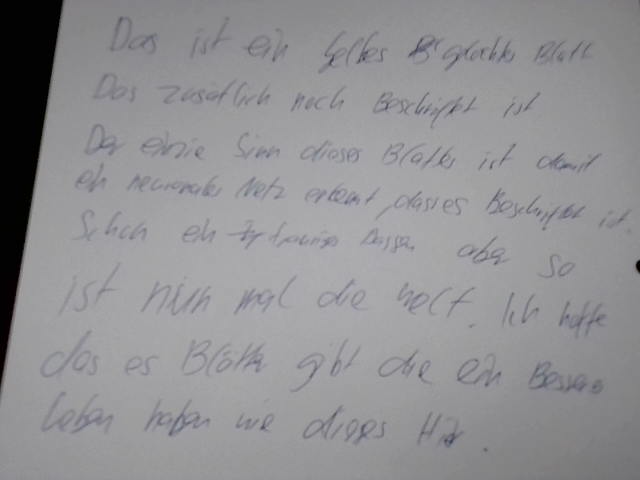 Das ist ein gelbes Blatt
Das zusätlich noch Beschriftet ist
Der einzie Sinn dieses Blattes ist damit
ein neuronales Netz erkennt, dass es Beschriftet ist.
Schon ein trauriges Dassen aber so
ist nun mal die welt. Ich hoffe
das es Blätter gibt die ein Besseres
leben haben wie dieses Hir.